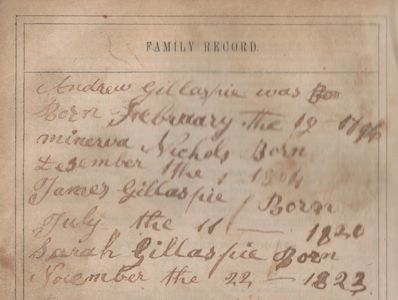 FAMILY RECORD.
Andrew Gillaspie was Bo
Born February the 19 - 1796
minerva Nichols Born
desember the 1 1804
James Gillaspie Born
July the 11 — 1820
Sarah Gillaspie Born
November the 22 — 1823